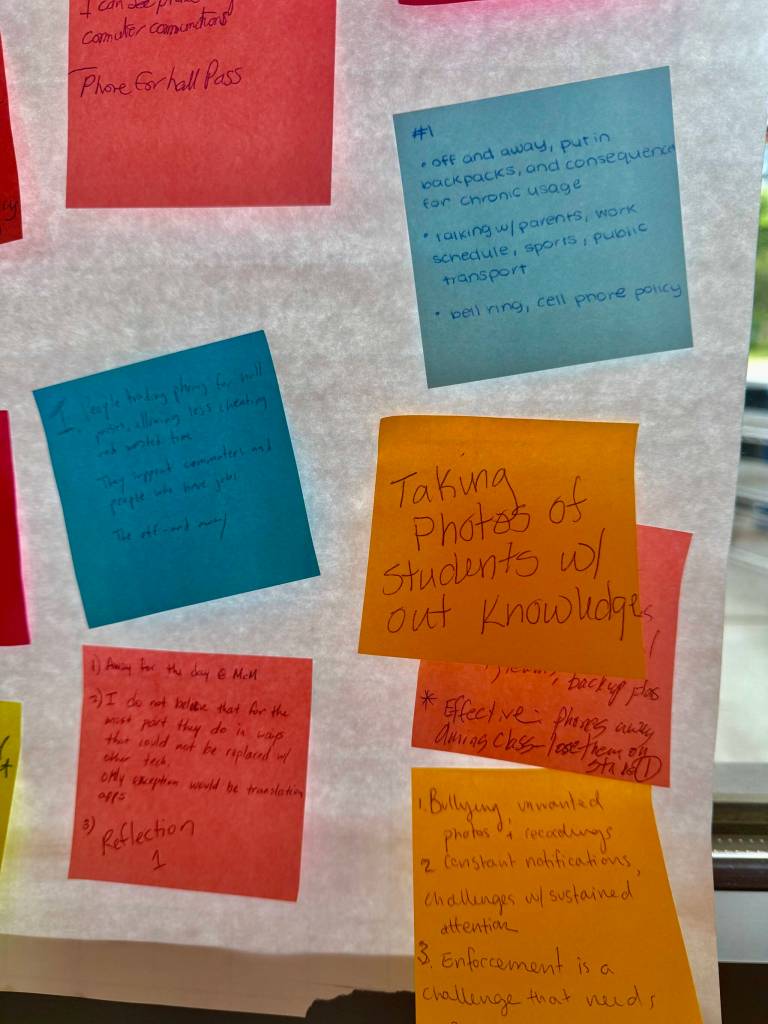 I can see
commuter communctions
Phone for hall Pass
#1
• off and away, put in
backpacks, and consequence
for chronic usage
• Talking w/ parents, work
schedule, sports, public
transport
• bell ring, cell phone policy
1. People trading phones for hall
passes, allowing less cheating
and wasted time
They support commuters and
people who have jobs
The off-and away
Taking
Photos of
students w/
out Knowledge
backup plas
* Effective: phones away
during class - lose them on
1
1) Away for the day @ McM
2) I do not believe that for the
most part they do in ways
that could not be replaced w/
other tech.
only exception would be translation
apps
3) Reflection
1
1. Bullying, unwanted
photos + recordings
2 Constant notifications,
challenges w/ sustained
attention
3. Enforcement is a
challenge that needs